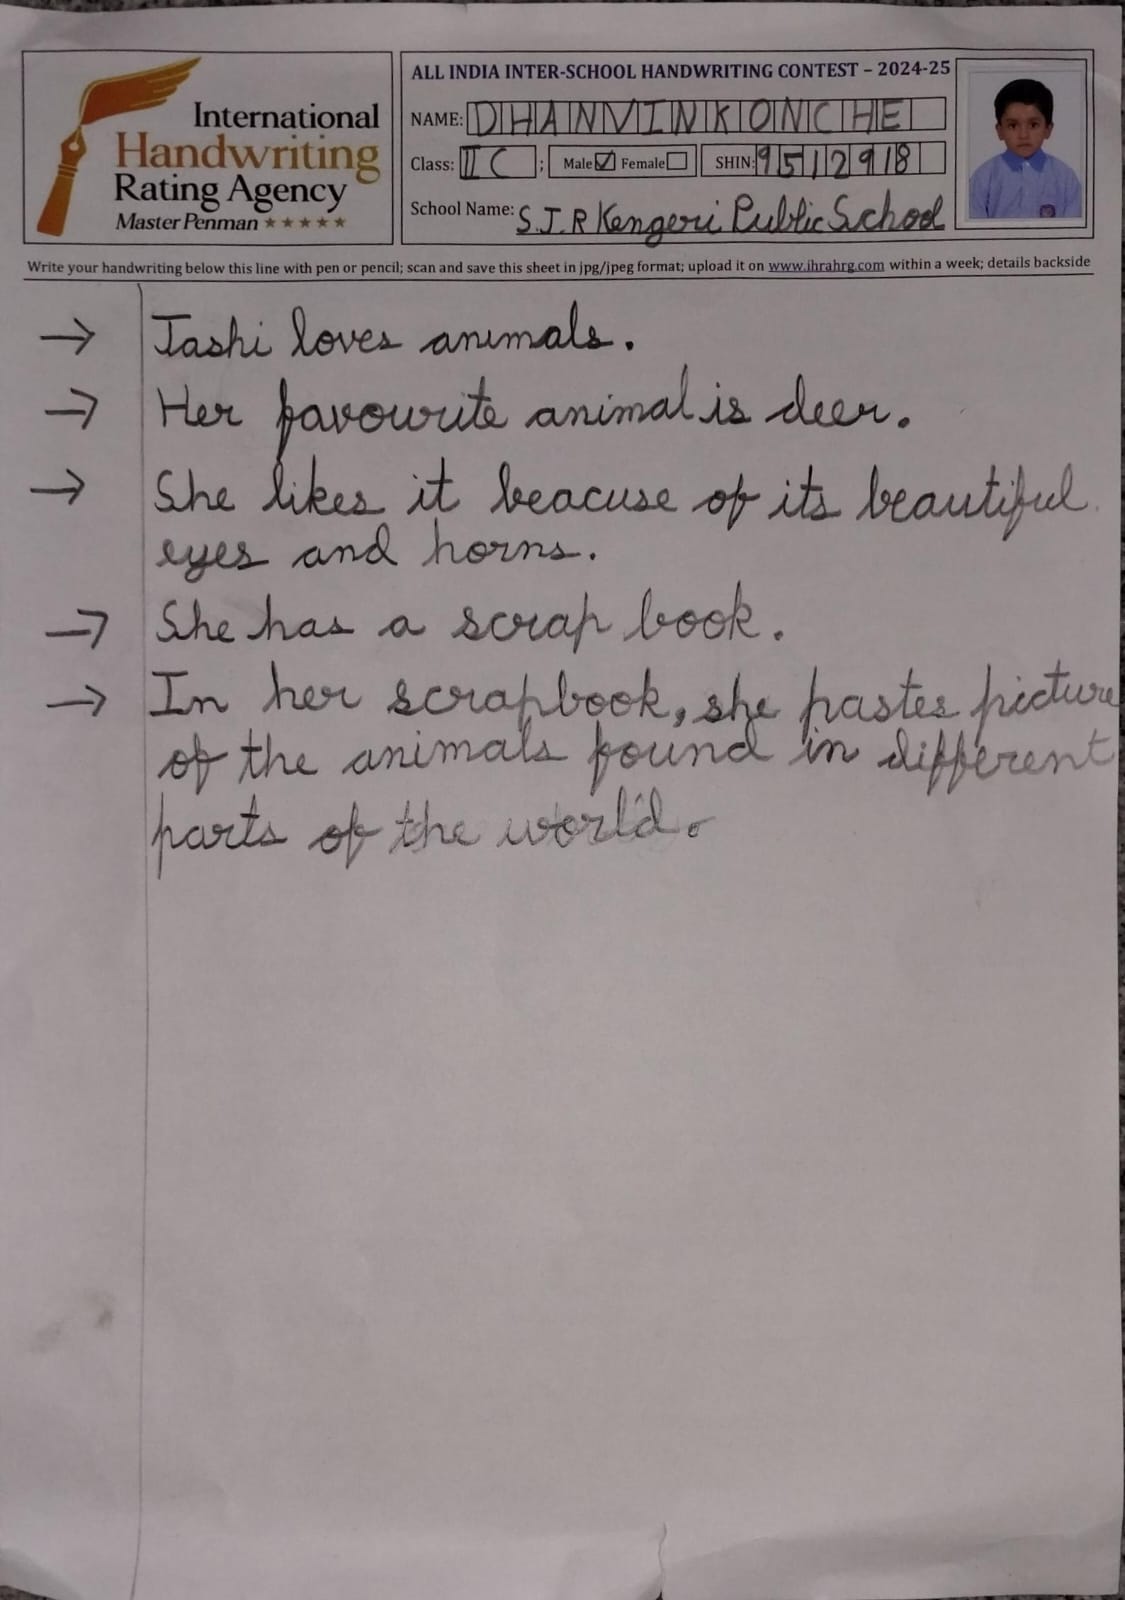 International
Handwriting
Rating Agency
Master Penman ★★★★★
ALL INDIA INTER-SCHOOL HANDWRITING CONTEST – 2024-25
NAME: DHANVINKONCHE
Class: II C ; Male ☑ Female ☐ SHIN: 9512918
School Name: S.J.R Kengeri Public School
Write your handwriting below this line with pen or pencil; scan and save this sheet in jpg/jpeg format; upload it on www.ihrahrg.com within a week; details backside
→ Tashi loves animals.
→ Her favourite animal is deer.
→ She likes it beacuse of its beautiful
eyes and horns.
→ She has a scrap book.
→ In her scrapbook, she pastes picture
of the animals found in different
parts of the world.